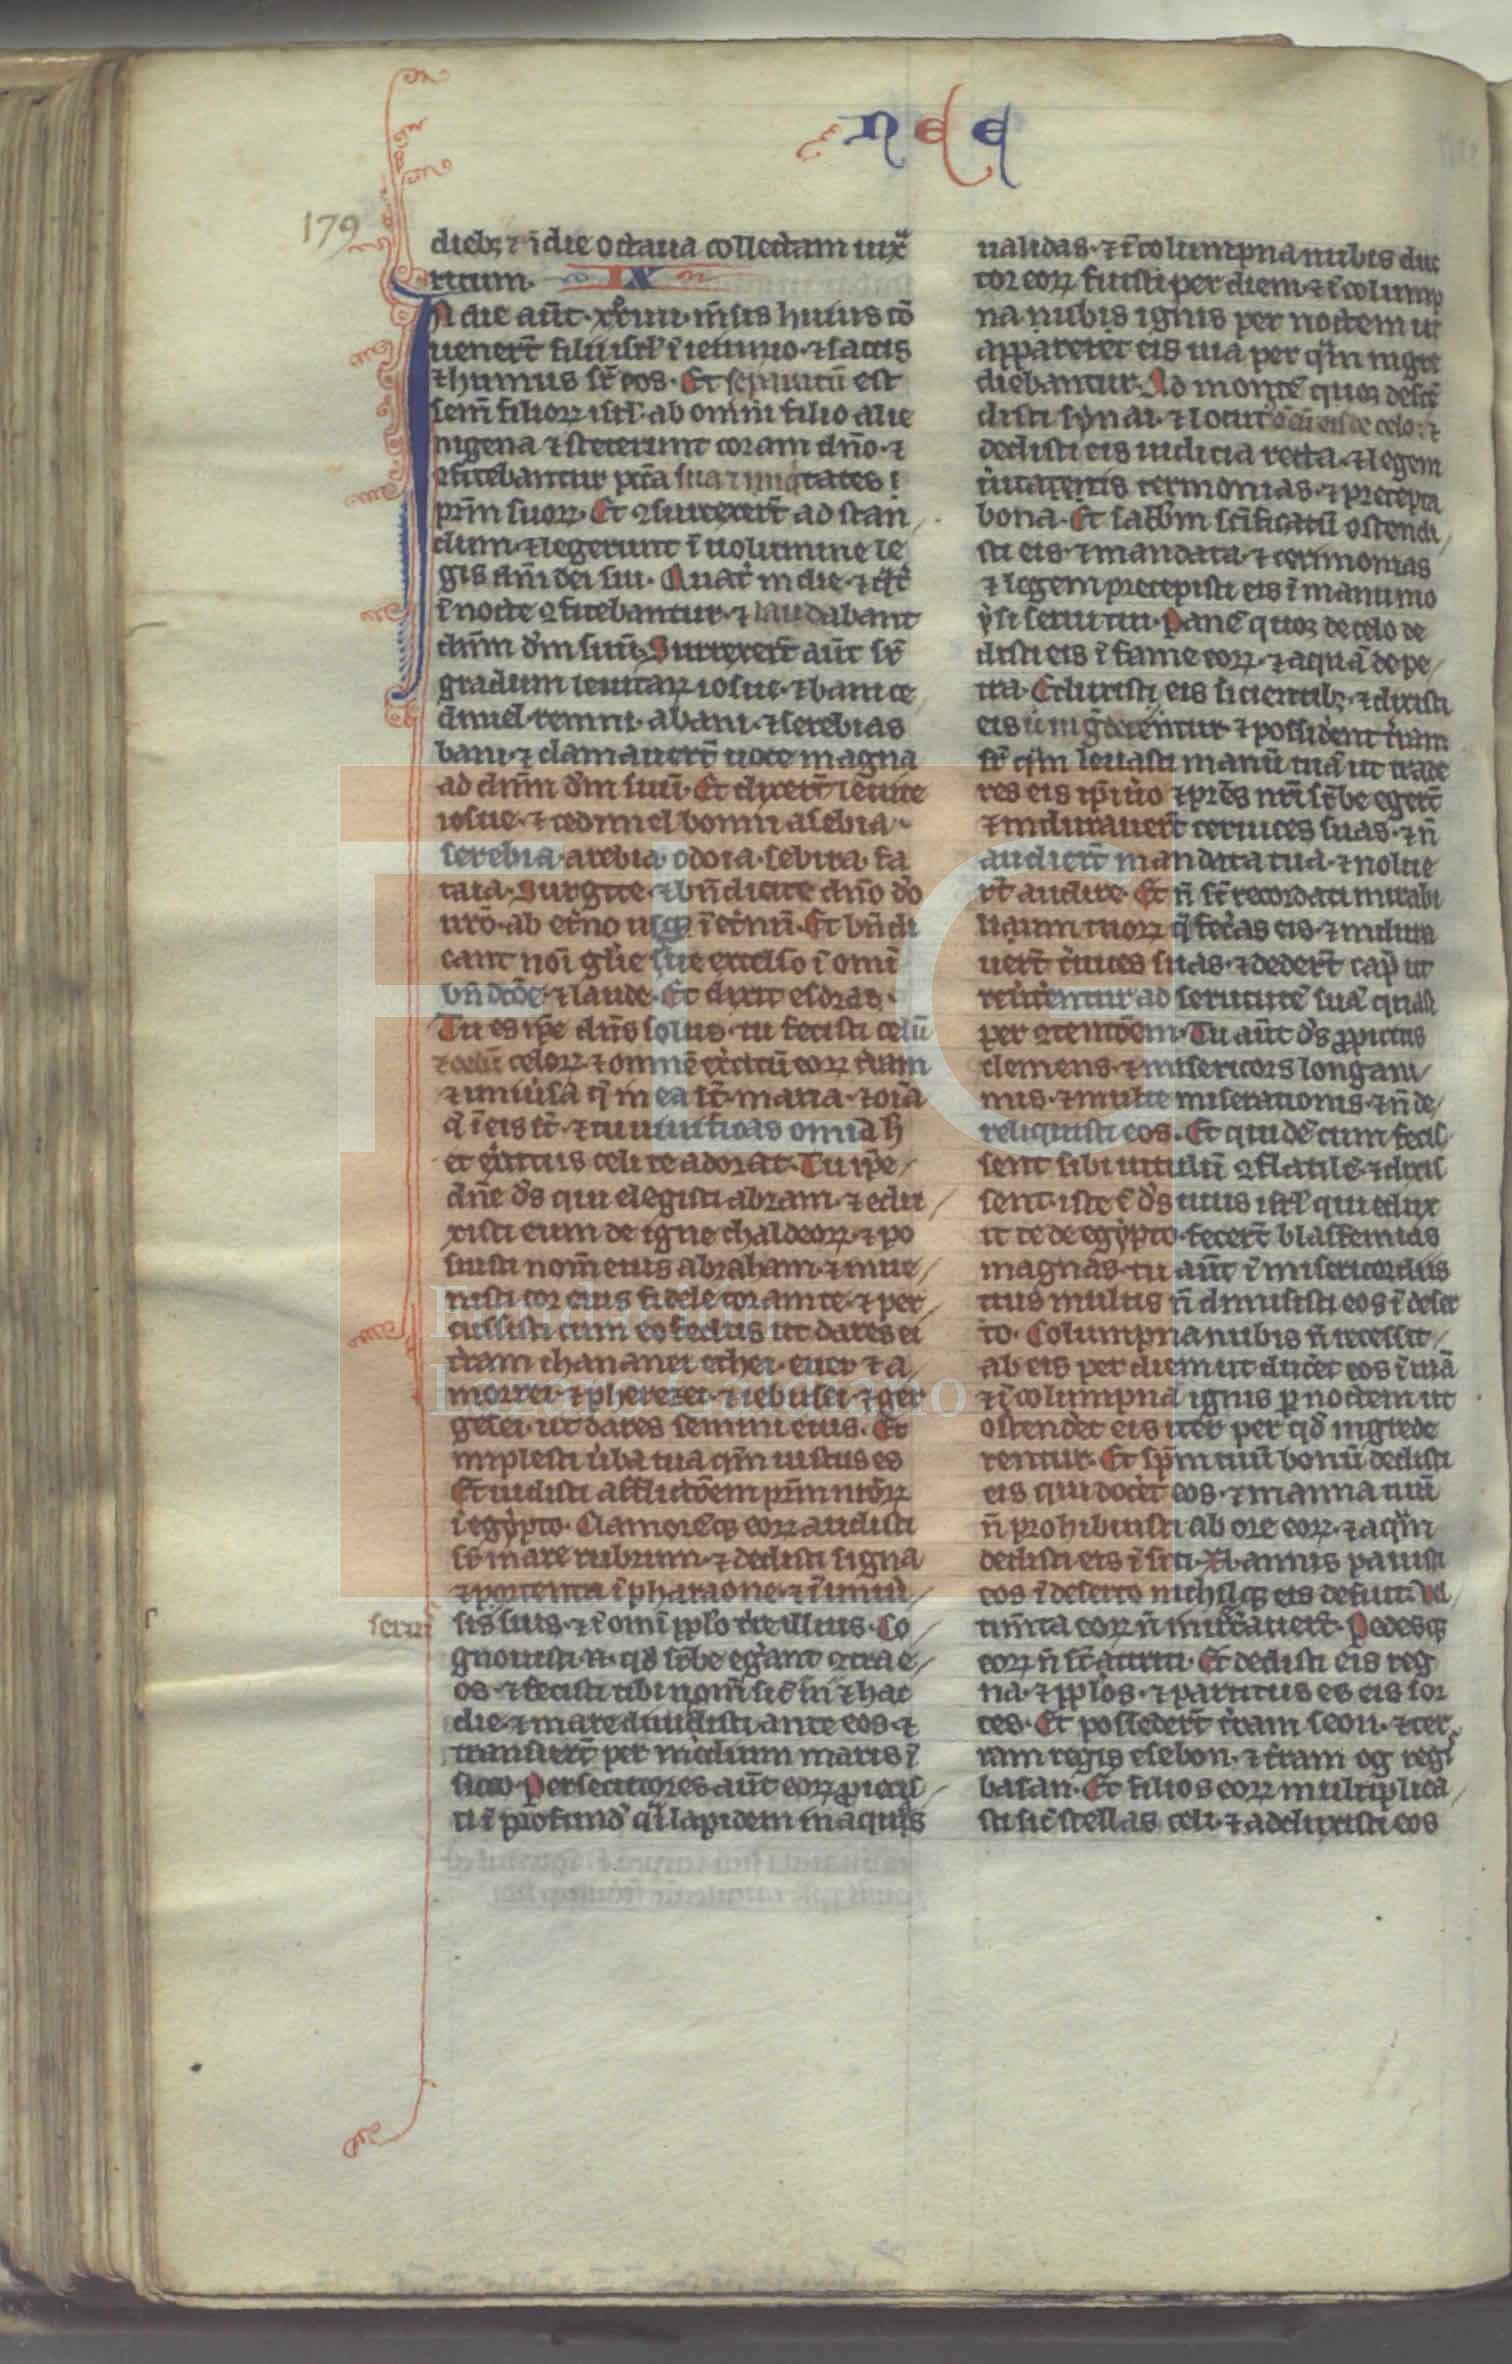 NEE
179
dieb; ⁊ ĩ die octaua collectam iux͛
ritum. IX
In die aũt .xx͛iiii. m̃sis huius cõ
uenert̃ filii isrl̕ ĩ ieiunio. ⁊ saccis
⁊ humus sr̃ eos. Et sepatũ est
sem̃ filioꝝ isrl̕. ab omni filio alie
nigena ⁊ steterunt coram dño. ⁊
ꝯfitebantur pcc̃a sua ⁊ iniqtates
pr̃m suoꝝ. Et ꝯsurrexert̃ ad stan
dum. ⁊ legerunt ĩ uolumine le
gis dñi dei sui. Quat̕ in die. ⁊ q̕t̕
ĩ nocte ꝯfitebantur. ⁊ laudabant
dñm dm̃ suũ. Surrexert̃ aũt sr̃
gradum leuitaꝝ iosue. ⁊ bani ce
dmiel. remni. abani. ⁊ serebias
bani. ⁊ clamauert̃ uoce magna
ad dñm dm̃ suũ. Et dixert̃ leuite
iosue. ⁊ cedmiel bonni asebia.
serebia. arebia. odoia. sebira. fa
taia. Surgite. ⁊ bñdicite dño do
uro. ab et̕no usqꝫ ĩ et̕nũ. Et bñdi
cant noĩ gl̕ie tue excelso ĩ omi
bñdctõe ⁊ laude. Et dixit esdras.
Tu es ipe dñs solus. tu fecisti celũ
⁊ celũ celoꝝ ⁊ omnẽ exc̕itũ eoꝝ t̕ram
⁊ uniũsa q̃ in ea st̃. maria. ⁊ oĩa
q̃ ĩ eis st̃. ⁊ tu uiuificas omia h̃
et ex̕citus celi te adorat. Tu ipe
dñe ds̃ qui elegisti abram. ⁊ edu
xisti eum de igne chaldeoꝝ. ⁊ po
suisti nom̃ eius abraham. ⁊ inue
nisti cor eius fidele coram te. ⁊ per
cussisti cum eo fedus ut dares ei
t̕ram chananei ethei. euei ⁊ a
morrei. ⁊ pherezei. ⁊ iebusei. ⁊ ger
gesei. ut dares semini eius. Et
implesti ũba tua qm̃ iustus es
Et uidisti afflictõem pr̃m nr̃oꝝ
ĩ egypto. Clamorẽqꝫ eoꝝ audisti
sr̃ mare rubrum. ⁊ dedisti signa
⁊ portenta ĩ pharaone. ⁊ ĩ uniũ
sis suis. ⁊ ĩ omĩ pplo t̕re illius. Co
gnouisti. n. qd̕ supbe eg̕ant ꝯtra e
os. ⁊ fecisti tibi nom̃ sic̃ ⁊ ĩ hac
die. ⁊ mare diuidisti ante eos. ⁊
transiert̃ per medium maris ĩ
sicco. Persecutores aũt eoꝝ ꝓiecis
ti ĩ profund̕ q͛i lapidem in aquis
seruis
ualidas. ⁊ ĩ columpna nubis duc
tor eoꝝ fuisti per diem. ⁊ ĩ colump
na nubis ignis per noctem ut
appareret eis uia per q̃m ingre
diebantur. Ad montẽ quoqꝫ descẽ
disti synai. ⁊ locut̕ cũ eis de celo. ⁊
dedisti eis iudicia recta. ⁊ legem
ũitatis cerimonias. ⁊ precepta
bona. Et sabb̃m sc̃ificatũ ostendi
sti eis. ⁊ mandata. ⁊ cerimonias
⁊ legem precepisti eis ĩ manu mo
ysi serui tui. Panẽ quoqꝫ de celo de
disti eis ĩ fame eoꝝ. ⁊ aquã de pe
tra. Eduxisti eis sicientib;. ⁊ dixisti
eis ut ingrederentur ⁊ possiderent t̕ram
sr̃ q̃m leuasti manũ tuã ut trade
res eis. ipi ũo ⁊ pr̃es nr̃i supbe egert̃
⁊ indurauert̃ ceruices suas. ⁊ ñ
audiert̃ mandata tua. ⁊ nolue
rt̃ audire. Et ñ st̃ recordati mirabi
lium tuoꝝ q̃ fec̕as eis. ⁊ indura
uert̃ c̕uices suas. ⁊ dedert̃ cap̃ ut
reũtentur ad seruitutẽ suã quasi
per ꝯtentõem. Tu aũt ds̃ ꝓpicius
clemens. ⁊ misericors longani
mis. ⁊ multe miserationis. ⁊ ñ de
reliquisti eos. Et quidẽ cum fecis
sent sibi uitulũ ꝯflatilẽ. ⁊ dixis
sent. iste ẽ ds̃ tuus isrl̕ qui edux
it te de egypto. fecert̃ blasfemias
magnas. tu aũt ĩ misericordiis
tuis multis ñ dimisisti eos ĩ deser
to. Columpna nubis ñ recessit
ab eis per diem ut duc̕et eos ĩ uiã
⁊ ĩ columpna ignis p noctem ut
ostenderet eis iter per qd̕ ingrede
rentur. Et sp̃m tuũ bonũ dedisti
eis qui docet eos. ⁊ manna tuũ
ñ prohibuisti ab ore eoꝝ. ⁊ aq̃m
dedisti eis ĩ siti. Xl. annis pauisti
eos ĩ deserto nichilqꝫ eis defuit. Ves
tim̃ta eoꝝ ñ inueterauert̃. Pedesqꝫ
eoꝝ ñ st̃ attriti. Et dedisti eis reg
na. ⁊ pplos. ⁊ partitus es eis sor
tes. Et possedert̃ t̕ram seon. ⁊ ter
ram regis esebon. ⁊ t̕ram og regis
basan. Et filios eoꝝ multiplica
sti sic̃ stellas celi. ⁊ adduxisti eos
FLG